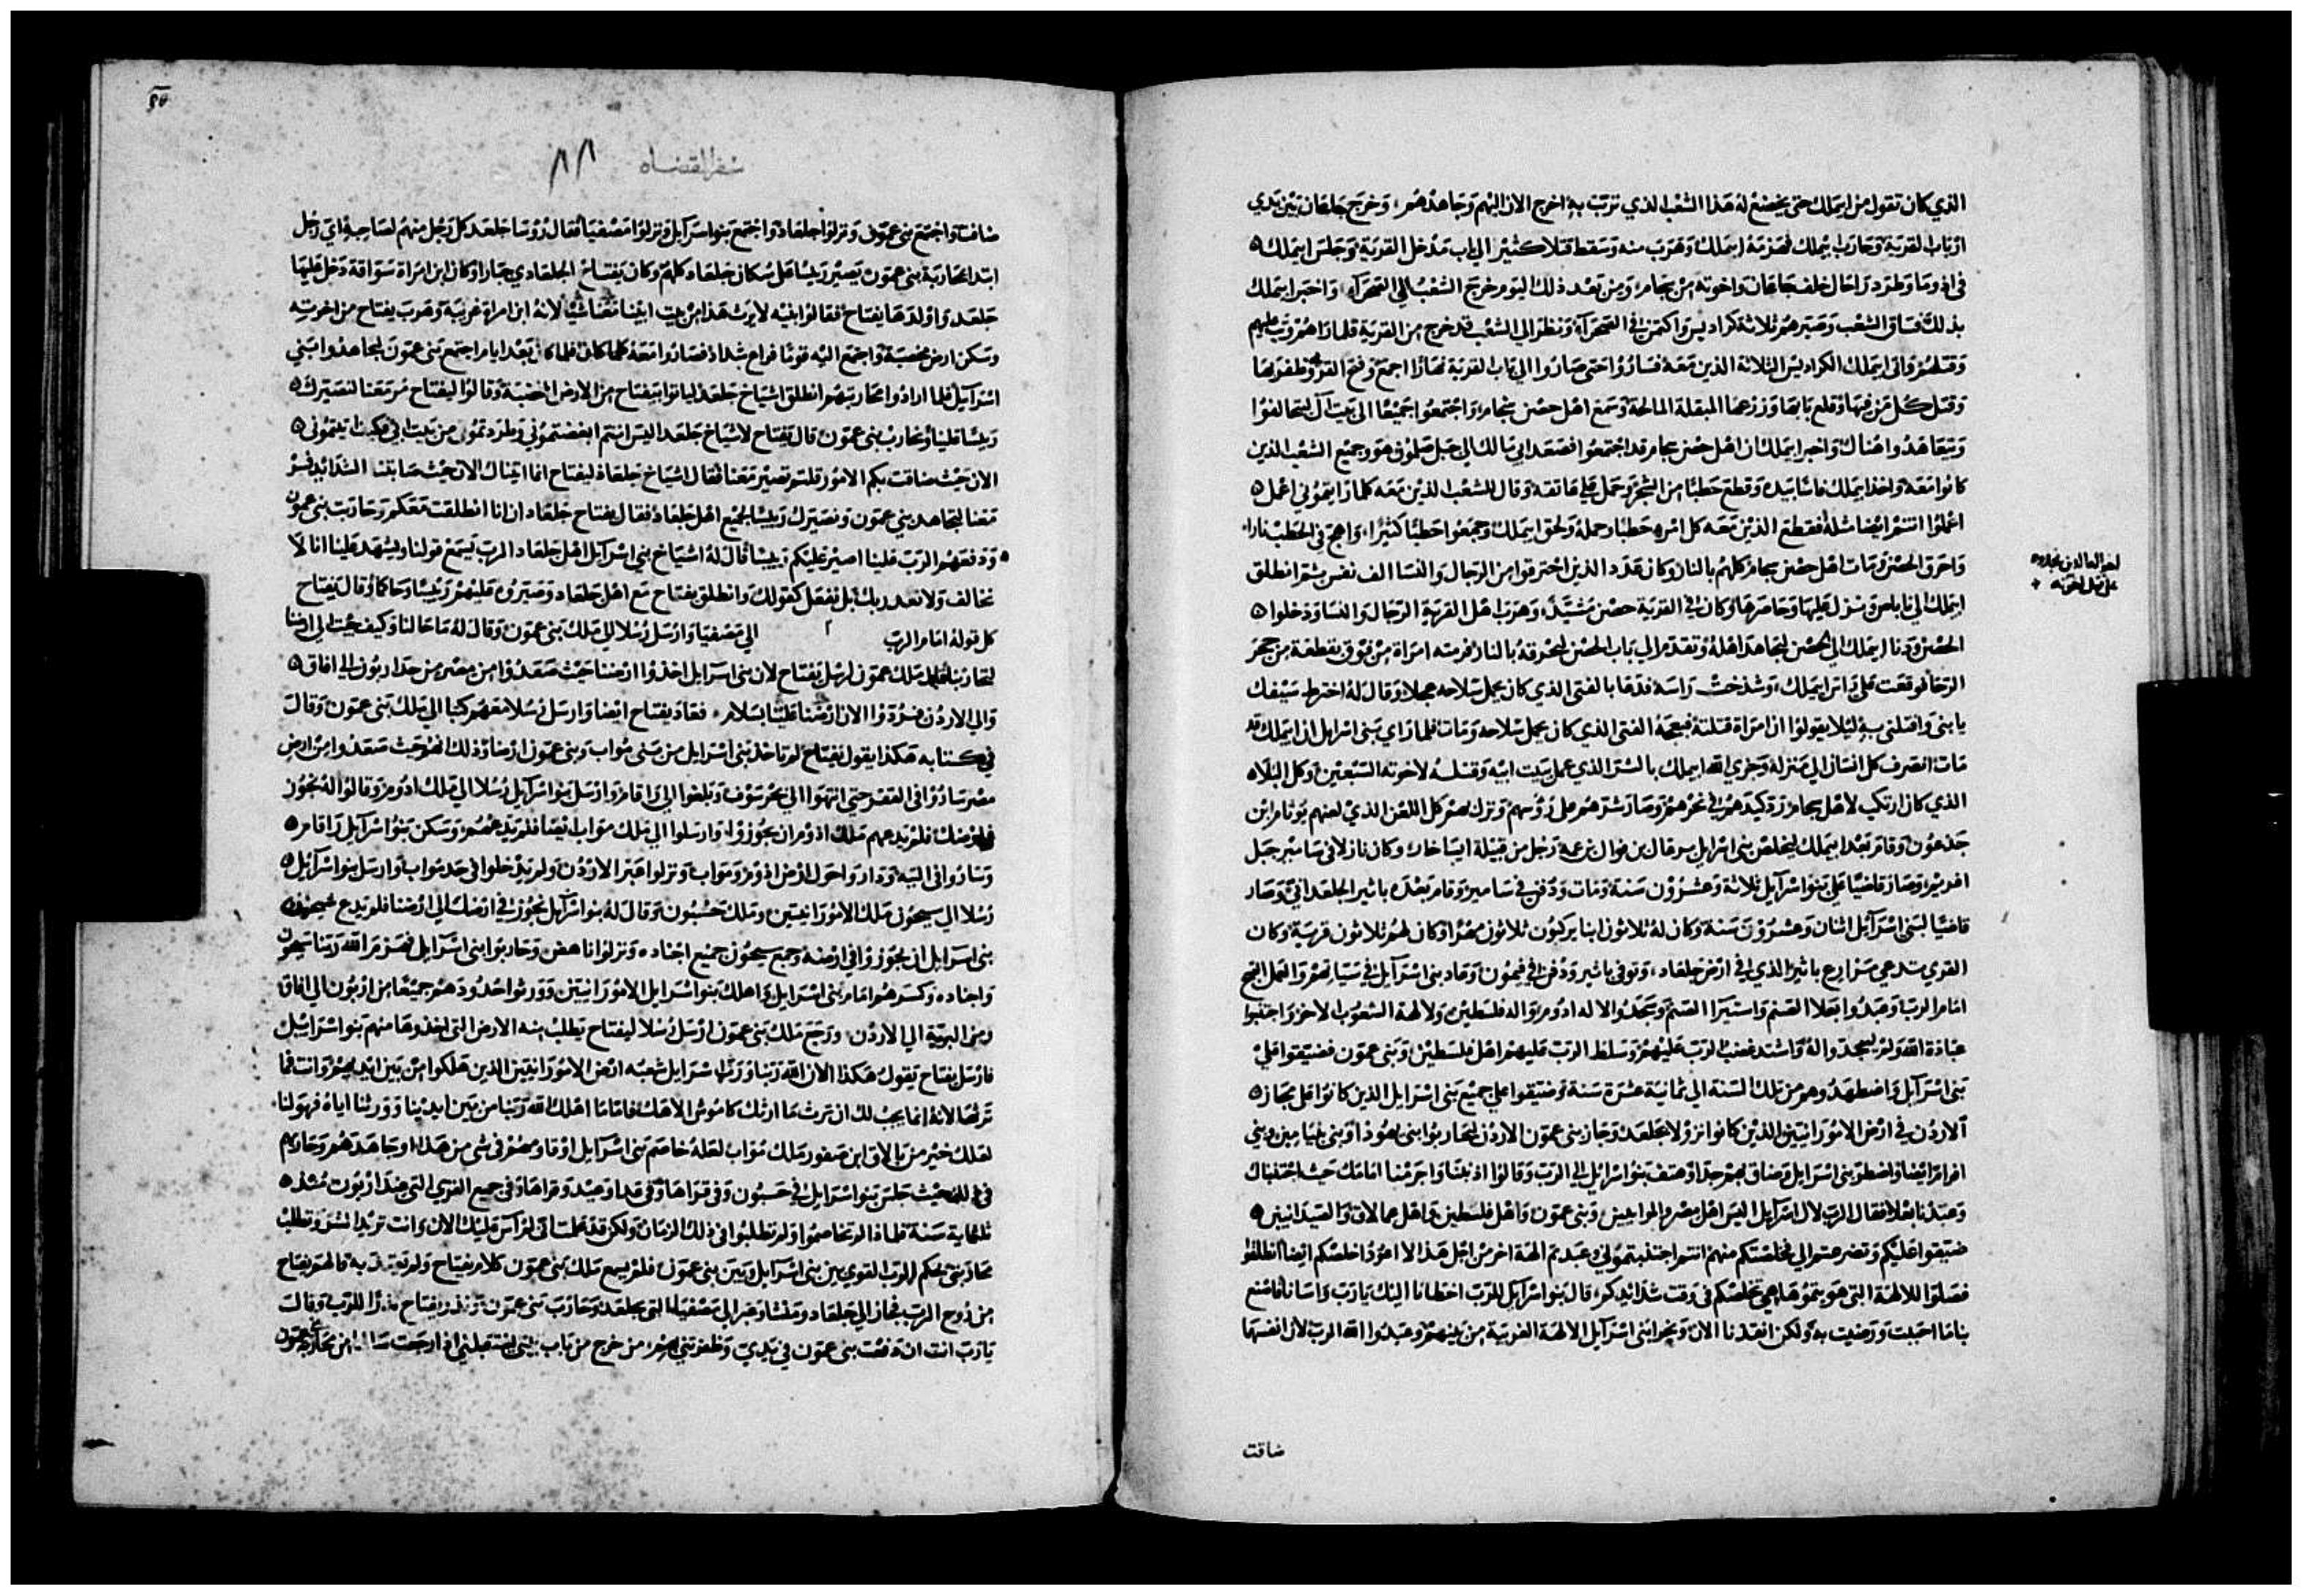 الذي كان تقول من ايملك حتى يخضع له هذا الشعب الذي ترتب به اخرج الان اليهم وجاهدهم، وخرج جلعان بين يدي
ارباب القرية وحارب يملك فهزمه ايملك وهرب منه وسقط قتلا كثير الي باب مدخل القرية وجلس ايملك
في ادوما وطرد زاخال خلف جاعان واخوته من بجامر ومن بعد ذلك اليوم خرج الشعب الي الصحرآ، واخبر ايملك
بذلك فساق الشعب وصيرهم ثلاثة كراديس واكمن في الصحرآ ونظر الي الشعب قد خرج من القرية فلما راهم وثب عليهم
وقتلهم واتى ايملك الكراديس الثلاثة الذين معه فساروا حتى صاروا الي باب القرية نهارا اجمع وفتح القرية وظفر بها
وقتل كل من فيها وقلع بابها وزرعها المبقلة المالحة وسمع اهل حصن بجامر، واجتمعوا جميعا الى بيت آل ليتحالفوا
ويتعاهدوا هناك واخبر ايملك ان اهل حصن بجامر قد اجتمعوا فصعد ابي مالك الي جبل صلمون هو وجميع الشعب الذين
كانوا معه واخذ ايملك فاسا بيده وقطع حطبا من الشجر وحمل علي عاتقه وقال للشعب الذين معه كلما رايتموني اعمل
اعملوا انتم ايضا مثله فقطع الذين معه كل امره حطبا وحمله ولحق ايملك وجمعوا حطبا كثيرا، واجج في الحطب نارا،
واحرق الحصن ومات اهل حصن بجامر كلهم بالنار وكان عدد الذين احترقوا من الرجال والنسا الف نفس ثم انطلق
ايملك الي ناباص ونزل عليها وحاصرها وكان في القرية حصن مشيد، وهرب اهل القرية الرجال والنسا ودخلوا
الحصن ودنا ايملك الي الحصن ليجاهد اهله وتقدم الي باب الحصن ليحرقه بالنار فرمته امراة من فوق بقطعة من حجر
الرحا فوقعت علي راس ايملك، وشدخت راسه فدعا بالفتى الذي كان يحمل سلاحه عجلا وقال له اخترط سيفك
يا بني واقتلني به ليلا يقولوا ان امراة قتلته فبعجه الفتى الذي كان يحمل سلاحه ومات فلما راي بني اسرايل ان ايملك قد
مات انصرف كل انسان الي منزله وجزي الله ايملك بالشر الذي عمل ببيت ابيه وقتله لاخوته السبعين وكل البلاه
الذي كان ارتكب لاهل بجامر رد كيدهم في نحرهم وصار شرهم علي روسهم ونزل بهم كل اللعن الذي لعنهم يوثام ابن
جدعون وقام بعد ايملك ليخلص بني اسرايل من قبيلة ايساخار وكان نازلا في سامير جبل
افريم، وصار قاضيا علي بنو اسرآيل ثلاثة وعشرون سنة ومات ودفن في سامير وقام بعده باثير الجلعداني وصار
قاضيا لبني اسرآيل اثنان وعشرون سنة وكان له ثلاثون ابنا يركبون ثلاثون مهرا وكان لهم ثلاثون قرية وكان
القري تدعي مزارع باثير الذي في ارض جلعاد، وتوفى باثير ودفن في فيمون وعاد بني اسرآيل في سيّاتهم والعمل القبيح
امام الرب وعبدوا بعلا الصنم واستيرا الصنم وسجدوا لاله ادوم واله فلسطين ولالهة الشعوب الاخر واجتنبوا
عبادة الله ولم يسجدوا له واشتد غضب الرب عليهم وسلط الرب عليهم اهل فلسطين وبني عمون فضيقوا علي
بني اسرآيل واضطهدوهم من تلك السنة الي ثمانية عشرة سنة وضيقوا علي جميع بني اسرايل الذين كانوا على مجاز
آلاردن في ارض الامورانيين الذين كانوا نزولا بجلعد وجاز بني عمون الاردن ليحاربوا بني يهوذا وبني بنيامين وبني
افرام ايضا واضطر بني اسرايل وضاق بهم جدا وهتف بنو اسرايل الي الرب وقالوا اذنبنا واجرمنا امامك حيث اجتنبناك
وعبدنا بعلا فقال الرب لال اسرآيل اليس اهل مصر والموابيين، وبني عمون واهل فلسطين واهل عمالاق والصيدانيين
ضيقوا عليكم وتضرعتم الي فخلصتكم منهم انتم اجتنبتموني وعبدتم الهة اخر من اجل هذا لا اعود اخلصكم ايضا انطلقوا
فصلوا للالهة التي هويتموها هي تخلصكم في وقت شدائدكم، قال بنو اسرآيل للرب اخطانا اليك يا رب واسانا فاصنع
بنا ما احببت ورضيت به ولكن انقذنا الان ونحوا بني اسرآيل الالهة الغريبة من بينهم وعبدوا الله الرب لان انفسها
ضاقت
لعن العالدين بجدوه
على قتل اخوته
سفر القضاه
ضاقت واجتمع بني عمون ونزلوا جلعاد واجتمع بنو اسرآيل ونزلوا مصفيا فقال روسا جلعد كل رجل منهم لصاحبه اي رجل
ابتدا بمحاربة بني عمون يصير ريسا على سكان جلعاد كلهم وكان يفتاح الجلعادي جبارا وكان ابن امراة سواقة دخل عليها
جلعد واولدها يفتاح فقالوا بنيه لا يرث هذا من بيت ابينا معنا شيا لانه ابن امراة غريبة وهرب يفتاح من اخوته
وسكن ارض مخصبة واجتمع اليه قوما فراع شداد فصاروا معه فلما كان بعد ايام اجتمع بني عمون ليجاهدوا بني
اسرآيل فلما ارادوا محاربتهم انطلق اشياخ جلعد لياتوا بيفتاح من الارض الخصبة وقالوا ليفتاح سر معنا لنصيرك
ريسا علينا ونحارب بني عمون قال يفتاح لاشياخ جلعد اليس انتم ابغضتموني وطردتموني من بيت ابي فكيف اتيتموني
الان حيث ضاقت بكم الامور قلتم تصير معنا فقال اشياخ جلعاد ليفتاح انما اتيناك الان حيث صابتنا الشدائد فسر
معنا لنجاهد بني عمون ونصيرك ريسا لجميع اهل جلعاد فقال يفتاح جلعاد ان انا انطلقت معكم وحاربت بني عمون
ودفعهم الرب علينا اصير عليكم رييسا قال له اشياخ بني اسرآيل اهل جلعاد الرب يسمع قولنا ويشهد علينا انا لا
نخالف ولا نعدد بك بل نفعل كقولك وانطلق يفتاح مع اهل جلعاد وصيروه عليهم رييسا وحاكما وقال يفتاح
كل قوله امام الرب الي مصفيا وارسل رسلا الي ملك بني عمون وقال له ما حالنا وكيف جيت الي ارضنا
لتحاربنا قال ملك عمون لرسل يفتاح لان بني اسرايل اخذوا ارضنا حيث صعدوا من مصر من حد اربون الي افاق
والي الاردن فردوا الان ارضنا علينا بسلام، فعاد يفتاح ايضا وارسل رسلا معهم كتبا الي ملك بني عمون وقال
في كتابه هكذا يقول يفتاح لم ياخذ بني اسرايل من بني مواب وبني عمون ارضا وذلك انهم حيث صعدوا من ارض
مصر ساروا في القفر حتى انتهوا الي بحر سوف وبلغوا الي راقام وارسل بنو اسرآيل رسلا الي ملك ادوم وقالوا له نجوز
في ارضك فلم يدعهم ملك ادوم ان يجوزوا، وارسلوا الي ملك مواب ايضا فلم يدعهم، وسكن بنو اسرآيل راقام
وساروا في التيه وداروا حول ارض ادوم ومواب ونزلوا عبر الاردن ولم يدخلوا في حد مواب وارسل بنو اسرآيل
رسلا الي سيحون ملك الامورانيين، وملك حشبون وقال له بنو اسرآيل نجوز في ارضك الي ارضنا فلم يدع سيحون
بني اسرايل ان يجوزوا في ارضه وجمع سيحون جميع اجناده ونزلوا ناهص وحاربوا بني اسرايل فهزم الله ربنا سيحون
واجناده وكسرهم امام بني اسرايل، واهلك بنو اسرايل الامورانيين وورثوا حدودهم جميعا من اربون الي افاق
ومن البرية الي الاردن، ورجع ملك بني عمون ارسل رسلا ليفتاح يطلب منه الارض التي اخذوها منهم بنو اسراييل
فارسل يفتاح يقول هكذا الان الله ربنا ورث اسرايل شعبه ارض الامورانيين الذين هلكوا من بين ايديهم وانت فما
ترثها لانه انما يجب لك ان ترث ما ارثك كاموش الاهك فاما ما اهلك الله ربنا من بين ايدينا وورثنا اياه فهو لنا
لعلك خير من بالاق ابن صفور ملك مواب لعله خاصم بني اسرآيل او قاومهم في شي من هذا، او جاهدهم وحاربهم
حيث جلس بنو اسرايل في حسبون وفي قراها وفي عداوعيد وقراها وفي جميع القري التي عند اربون منذ
ثلثماية سنة فلماذا لم تخاصموا ولم تطلبوا في ذلك الزمان ولكن قد علمت اني لم آس عليك الان وانت تريد الشر وتطلب
محاربتي يحكم الرب القوي بين بني اسرآيل وبين بني عمون، فلم يسمع ملك بني عمون كلام يفتاح ولم يعتد به فالهم يفتاح
من روح الرب فجاز الي جلعاد ومنشا وعبر الي مصفيا التي بجلعد وحارب بني عمون ونذر يفتاح نذرا للرب وقال
يا رب انت ان دفعت بني عمون في يدي وظفرتني بهم، من خرج من باب بيتي لتستقبلني اذا رجعت سالما من محاربة بني عمون